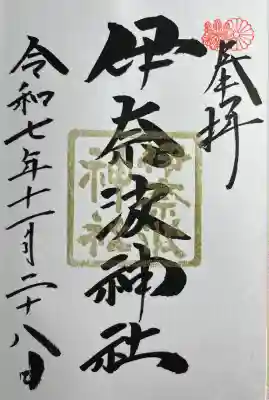 奉拝
伊奈波神社
伊奈波神社
令和七年十一月二十八日